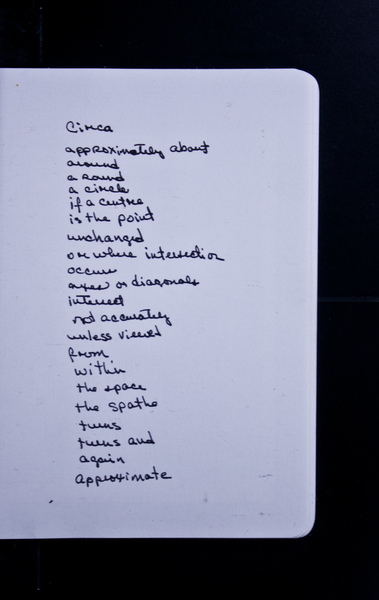 Circa
approximately about
around
a round
a circle
if a centre
is the point
unchanged
or where intersection
occurs
axes or diagonals
intersect
not accurately
unless viewed
from
within
the space
the spathe
turns
turns and
again
approximate